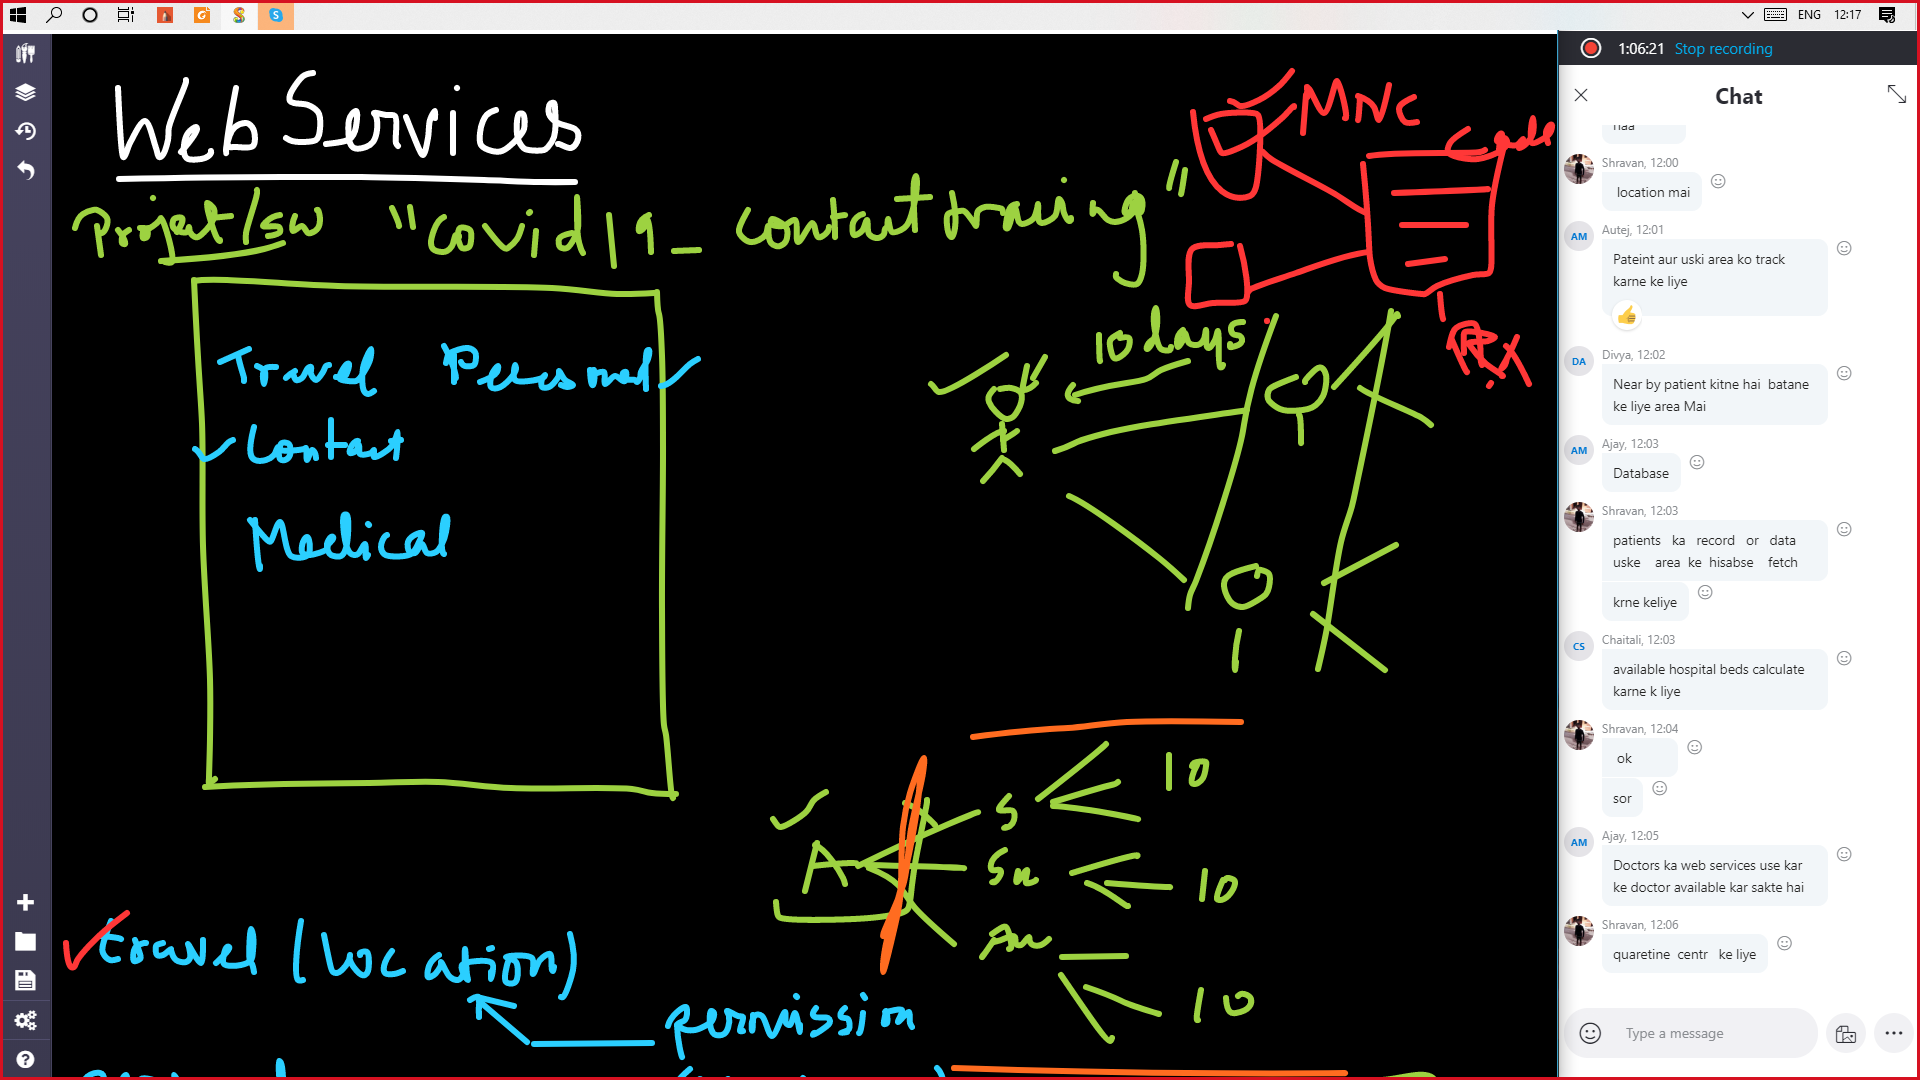 ENG 12:17
Web Services
Project/sw "Covid19_ contact tracing"
MNC
Code
10 days
Travel Personal
Contact
Medical
A
S 10
Sn 10
10
travel (location)
permission
1:06:21 Stop recording
Chat
Shravan, 12:00
location mai
AM
Autej, 12:01
Pateint aur uski area ko track
karne ke liye
DA
Divya, 12:02
Near by patient kitne hai batane
ke liye area Mai
AM
Ajay, 12:03
Database
Shravan, 12:03
patients ka record or data
uske area ke hisabse fetch
krne keliye
CS
Chaitali, 12:03
available hospital beds calculate
karne k liye
Shravan, 12:04
ok
sor
AM
Ajay, 12:05
Doctors ka web services use kar
ke doctor available kar sakte hai
Shravan, 12:06
quaretine centr ke liye
Type a message